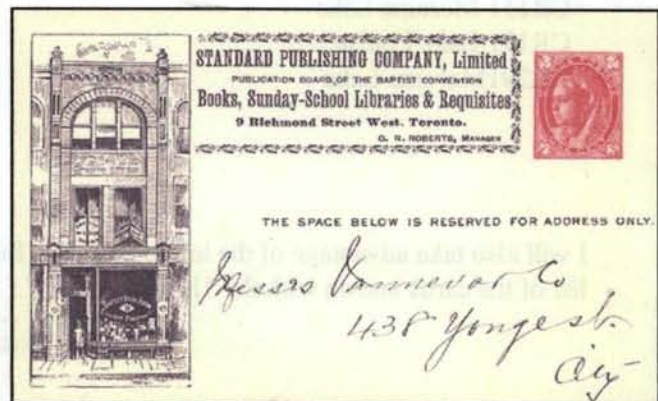 STANDARD PUBLISHING COMPANY, Limited
PUBLICATION BOARD OF THE BAPTIST CONVENTION
Books, Sunday-School Libraries & Requisites
9 Richmond Street West. Toronto.
G. R. ROBERTS, MANAGER
THE SPACE BELOW IS RESERVED FOR ADDRESS ONLY.
Messrs Vannevar Co
438 Yonge st.
City
I will also take advantage of the
list of the